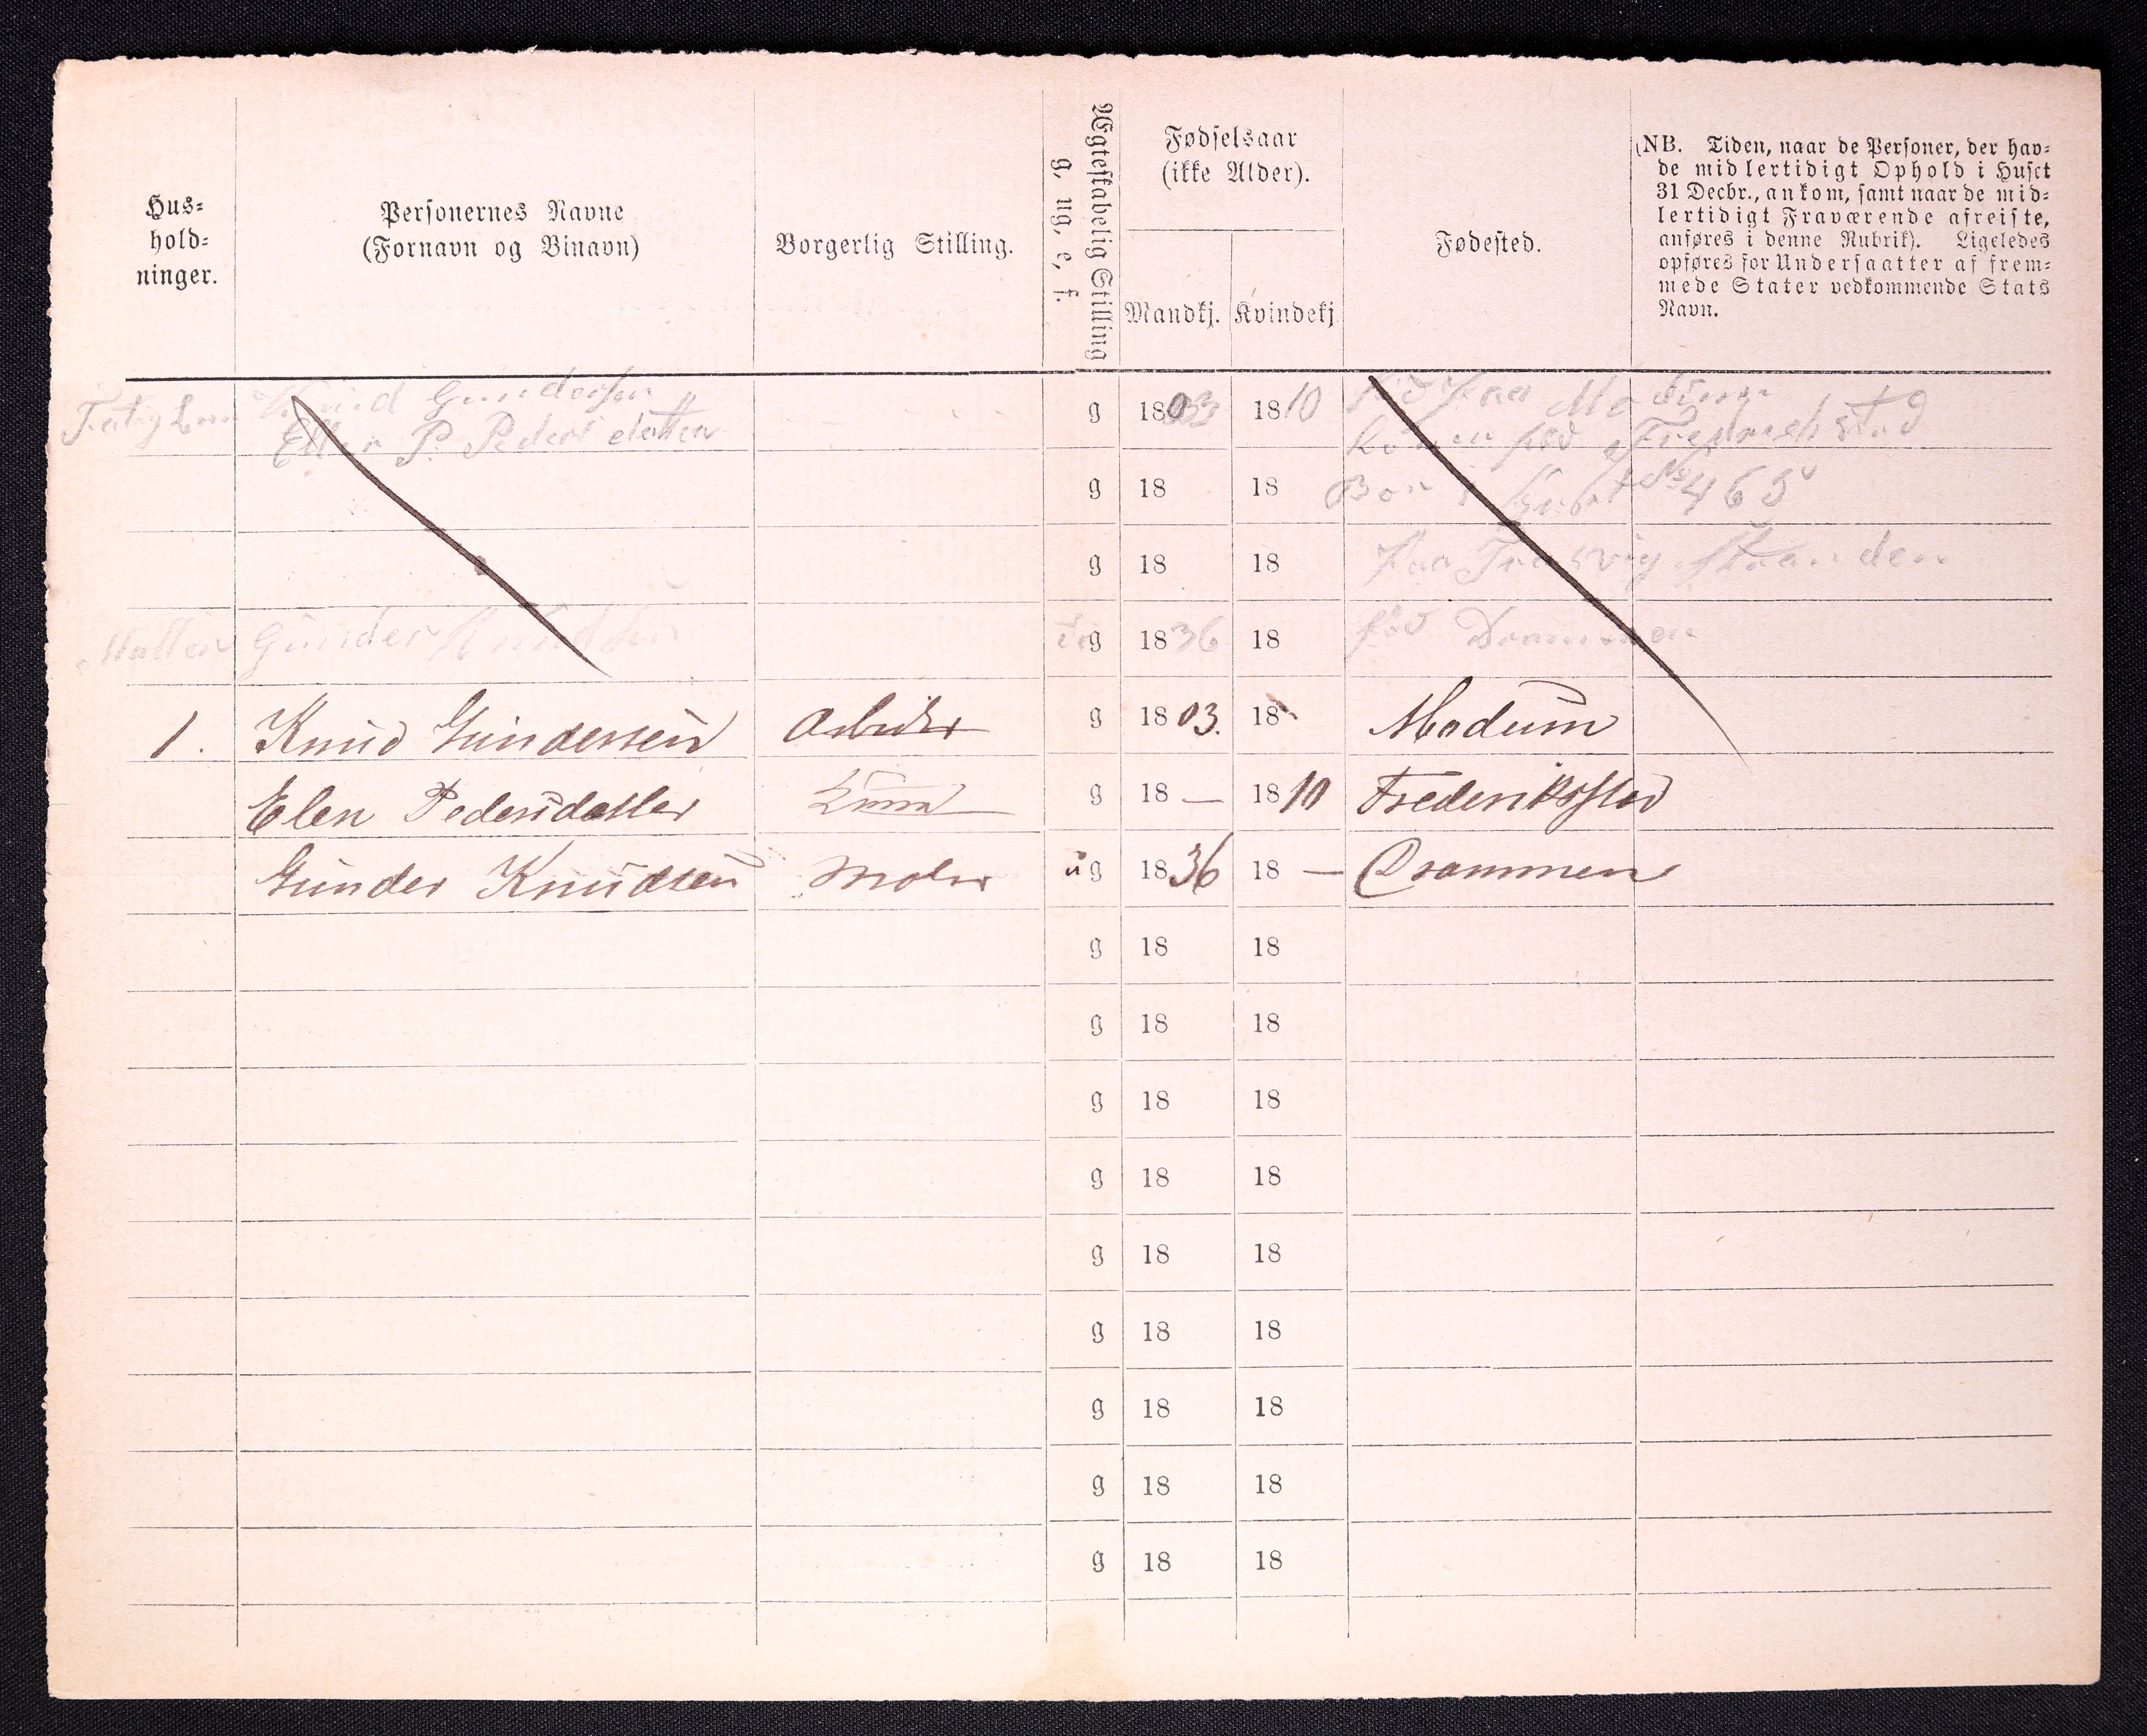 Hus-
hold-
ninger.
Personernes Navne
(Fornavn og Binavn)
Borgerlig Stilling.
Ægteskabelig Stilling
g, ug, e, f.
Fødselsaar
(ikke Alder).
Mandkj. Kvindekj.
Fødested.
(NB. Tiden, naar de Personer, der hav-
de midlertidigt Ophold i Huset
31 Decbr., ankom, samt naar de mid-
lertidigt Fraværende afreiste,
anføres i denne Rubrik). Ligeledes
opføres for Undersaatter af frem-
mede Stater vedkommende Stats
Navn.
Knud Gundersen g 1803 1810 fød paa Modum
Ellen P. Pedersdatter fød Fredrichstad
g 18 18 Boer i Huset No 465
g 18 18 paa Tangen Stranden
Gunder Knudsen ug 1836 18 fød Drammen
1. Knud Gundersen Arbeider g 1803. 18 Modum
Elen Pedersdatter Kone g 18 — 1810 Frederiksstad
Gunder Knudsen Maler ug 1836 18 — Drammen
g 18 18
g 18 18
g 18 18
g 18 18
g 18 18
g 18 18
g 18 18
g 18 18
g 18 18